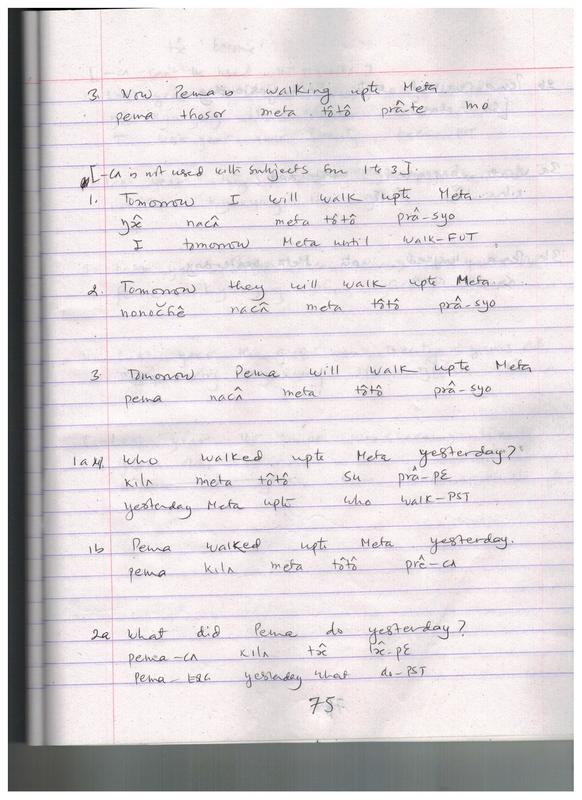 3. Now Pema is walking upto Meta
pema thosor meta tôtô prâ-te mo
[-cʌ is not used with subjects for 1 to 3].
1. Tomorrow I will walk upto Meta.
nacʌ̂ meta tôtô prâ-syo
I tomorrow Meta until walk-FUT
2. Tomorrow they will walk upto Meta.
nacʌ̂ meta tôtô prâ-syo
3. Tomorrow Pema will walk upto Meta
pema nacʌ̂ meta tôtô prâ-syo
1a Who walked upto Meta yesterday?
kilʌ meta tôtô su prâ-pɛ
yesterday Meta upto who walk-PST
1b Pema walked upto Meta yesterday.
pema kilʌ meta tôtô prê-cʌ
2a What did Pema do yesterday?
pema-cʌ kilʌ
Pema-ERG yesterday what do-PST
75